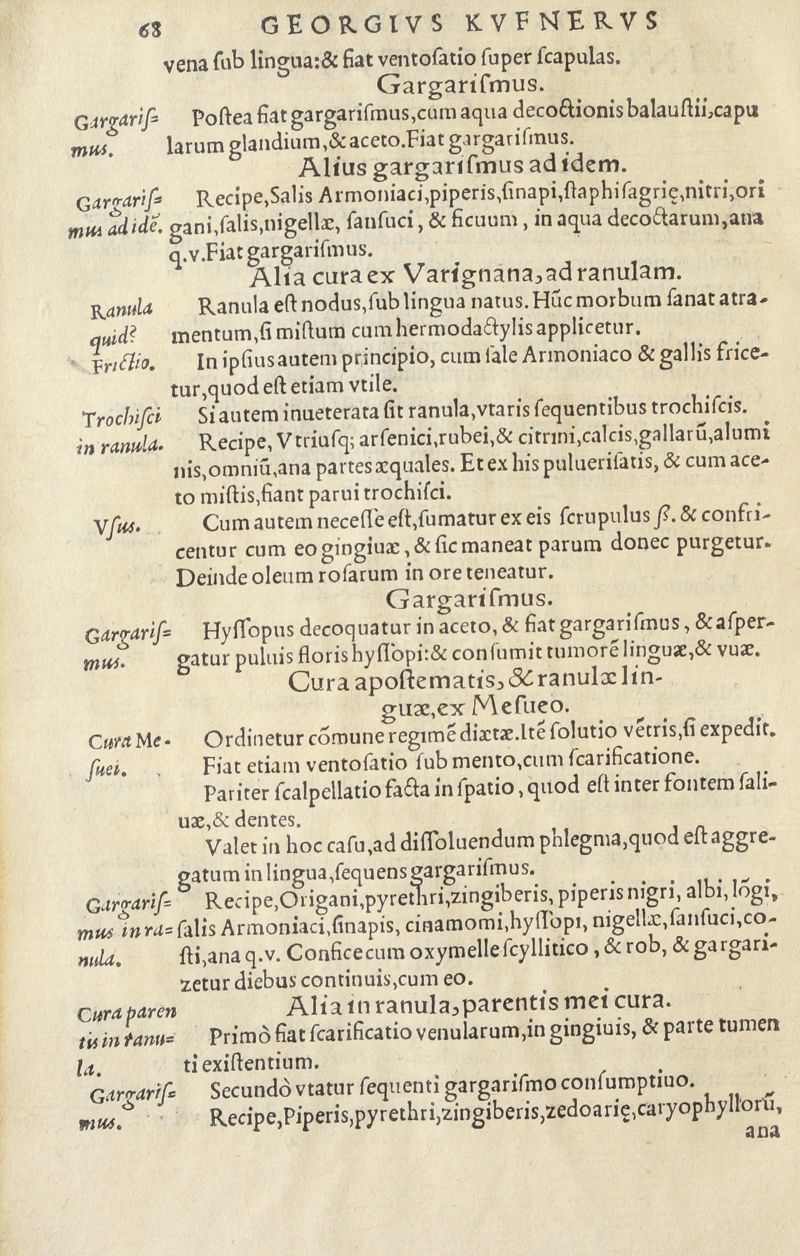 68 GEORGIVS KVFNERVS
vena ſub lingua:& fiat ventoſatio ſuper ſcapulas.
Gargariſmus.
Gargariſ= Poſtea fiat gargariſmus,cum aqua decoctionis balauſtii,capu
mus. larum glandium,& aceto.Fiat gargariſmus.
Alius gargariſmus ad idem.
Gargariſ= Recipe,Salis Armoniaci,piperis,ſinapi,ſtaphiſagrię,nitri,ori
mus ad idē. gani,ſalis,nigellæ, ſanſuci, & ficuum, in aqua decoctarum,ana
q.v.Fiat gargariſmus.
Alia cura ex Varignana,ad ranulam.
Ranula Ranula eſt nodus,ſub lingua natus. Hūc morbum ſanat atra-
quid? mentum,ſi miſtum cum hermodactylis applicetur.
Frictio. In ipſius autem principio, cum ſale Armoniaco & gallis frice-
tur,quod eſt etiam vtile.
Trochiſci Si autem inueterata ſit ranula,vtaris ſequentibus trochiſcis.
in ranula. Recipe, Vtriuſq; arſenici,rubei,& citrini,calcis,gallarū,alumi
nis,omniū,ana partes æquales. Et ex his pulueriſatis, & cum ace-
to miſtis,fiant parui trochiſci.
Vſus. Cum autem neceſſe eſt,ſumatur ex eis ſcrupulus ſ?. & confri-
centur cum eo gingiuæ, & ſic maneat parum donec purgetur.
Deinde oleum roſarum in ore teneatur.
Gargariſmus.
Gargariſ= Hyſſopus decoquatur in aceto, & fiat gargariſmus, & aſper-
mus. gatur puluis floris hyſſopi:& conſumit tumorē linguæ,& vuæ.
Cura apoſtematis,& ranulæ lin-
guæ,ex Meſueo.
Cura Me- Ordinetur cōmune regimē diætæ.Itē ſolutio vētris,ſi expedit.
ſuei. Fiat etiam ventoſatio ſub mento,cum ſcarificatione.
Pariter ſcalpellatio facta in ſpatio, quod eſt inter fontem ſali-
uæ,& dentes.
Valet in hoc caſu,ad diſſoluendum phlegma,quod eſt aggre-
gatum in lingua,ſequens gargariſmus.
Gargariſ= Recipe,Origani,pyrethri,zingiberis, piperis nigri, albi, lōgi,
mus in ra= ſalis Armoniaci,ſinapis, cinamomi,hyſſopi, nigellæ,ſanſuci,co-
nula. ſti,ana q.v. Confice cum oxymelle ſcyllitico, & rob, & gargari-
zetur diebus continuis,cum eo.
Cura paren Alia in ranula,parentis mei cura.
tis in ranu= Primò fiat ſcarificatio venularum,in gingiuis, & parte tumen
la. ti exiſtentium.
Gargariſ= Secundò vtatur ſequenti gargariſmo conſumptiuo.
mus. Recipe,Piperis,pyrethri,zingiberis,zedoarię,caryophyllorū,
ana